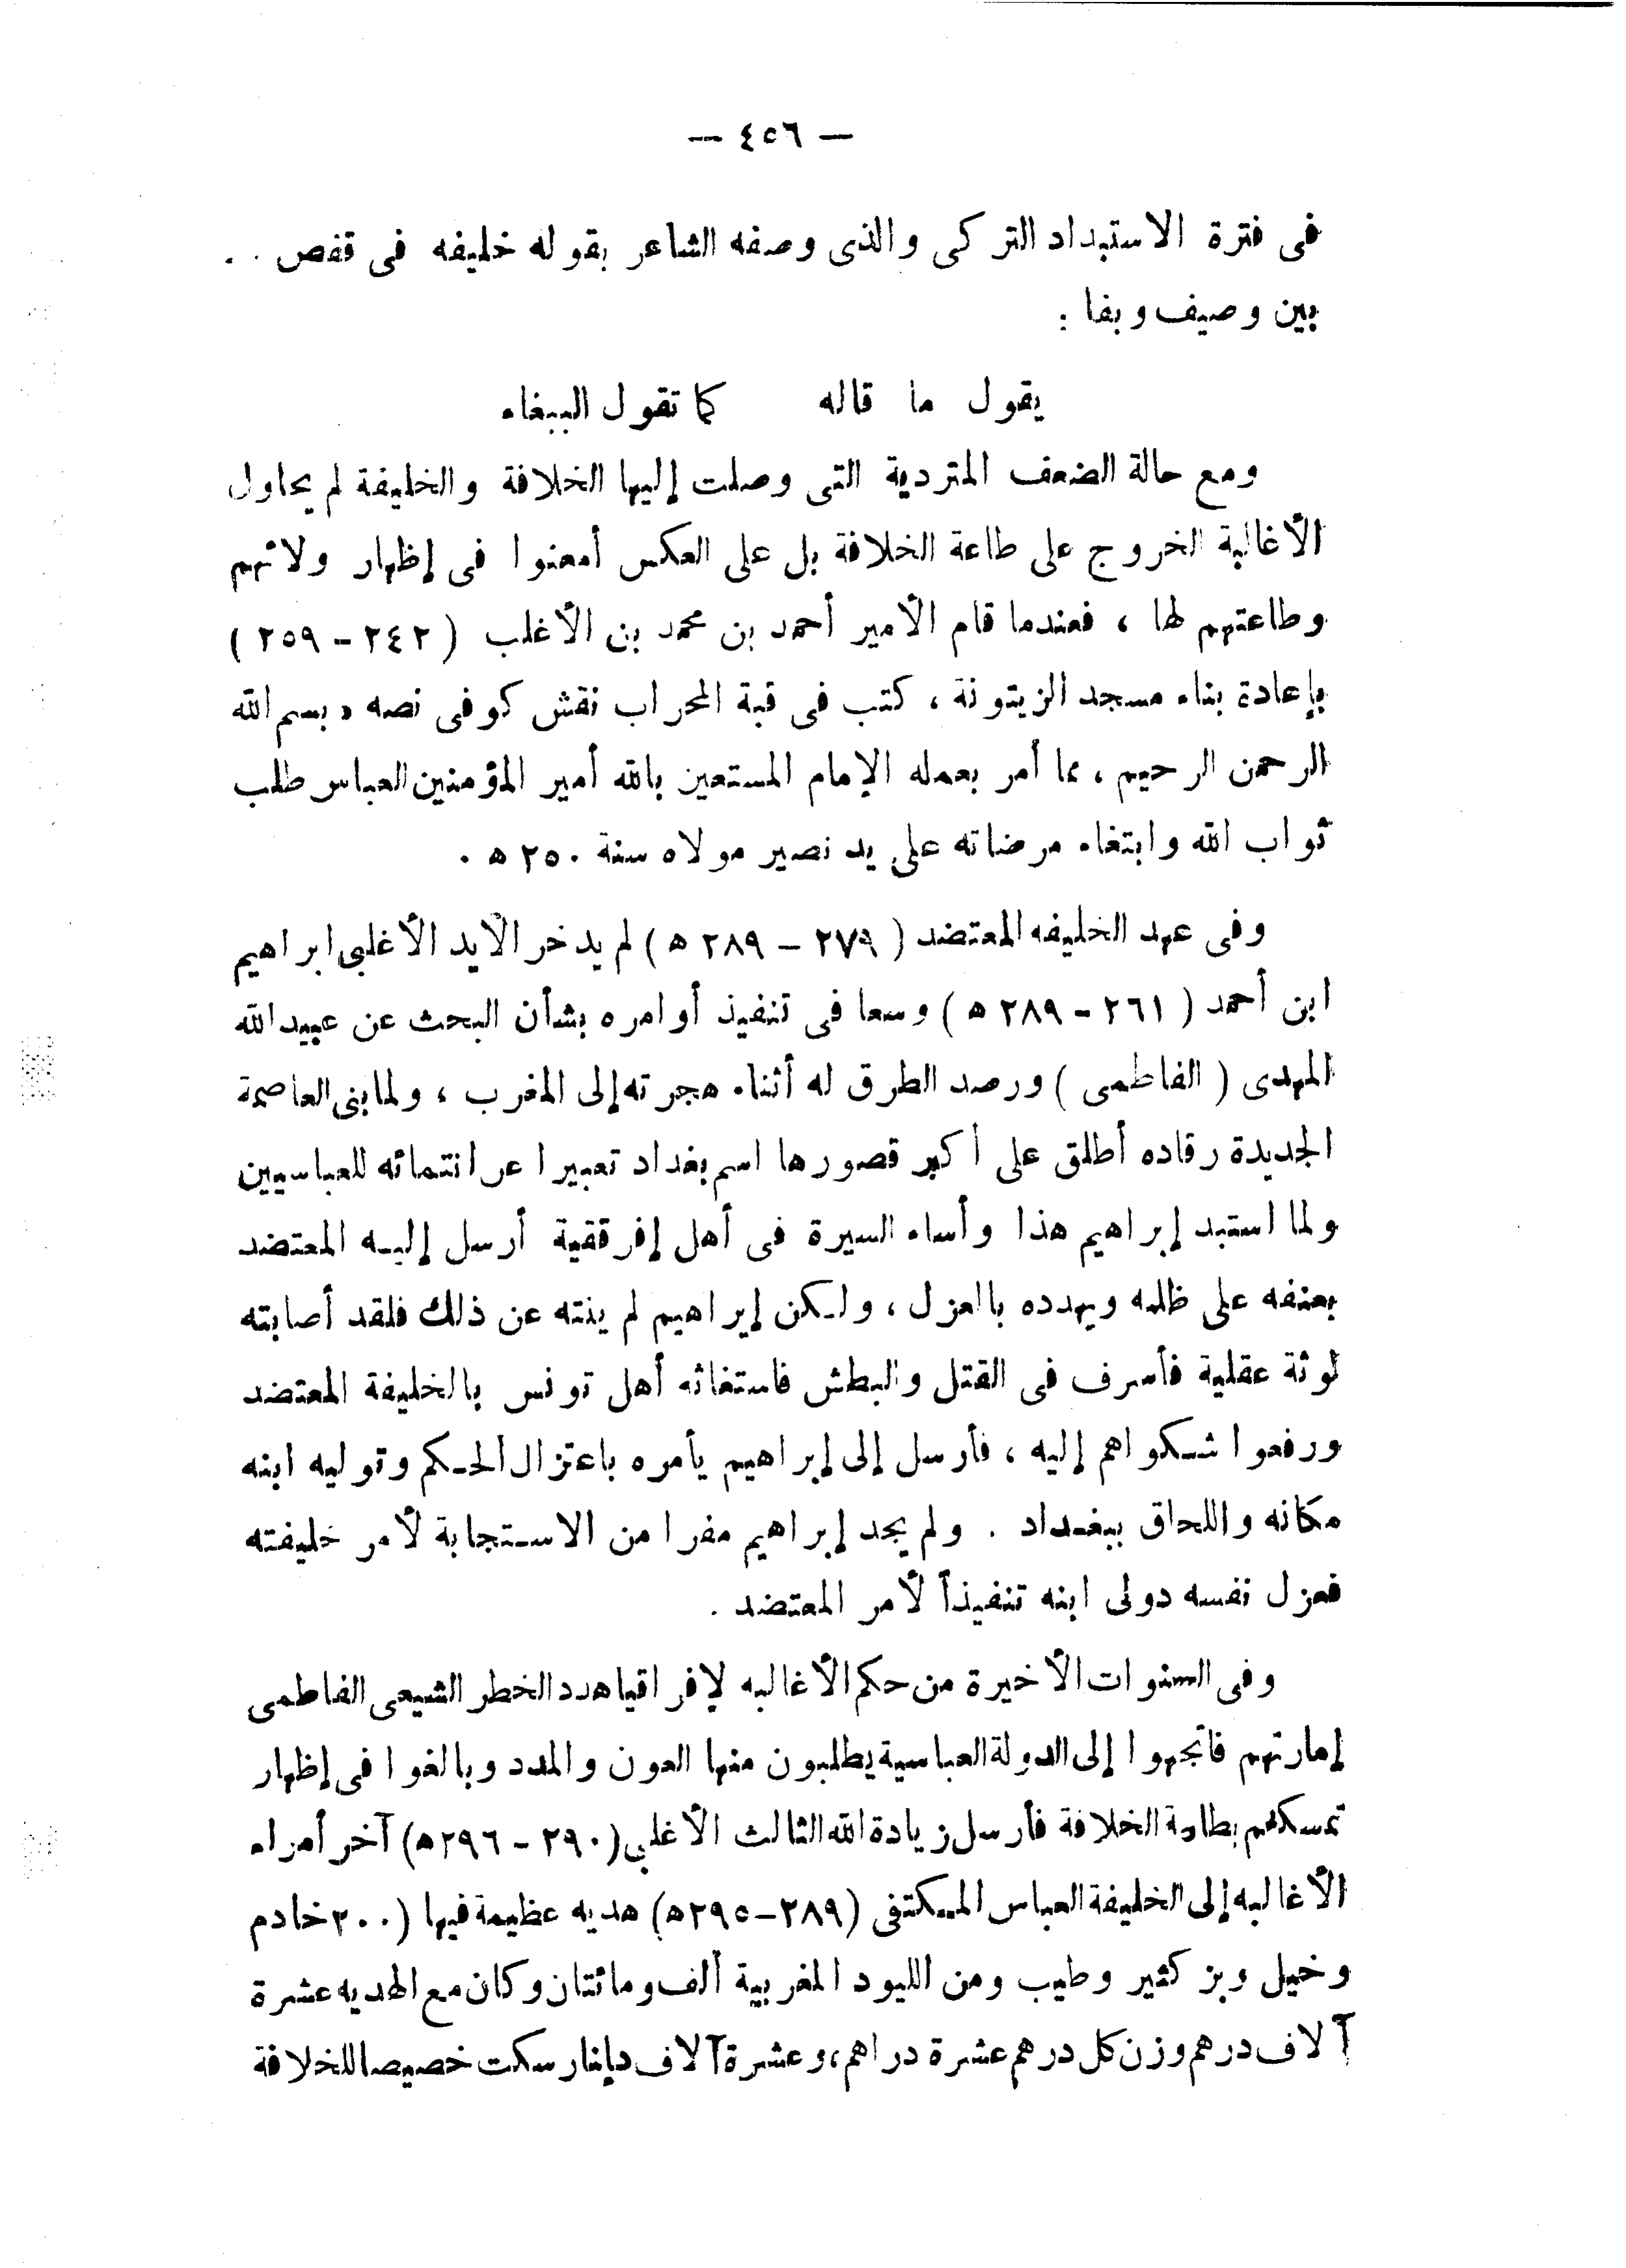 — ٤٥٦ —
فى فترة الاستبداد التركى والذى وصفه الشاعر بقوله خليفه فى قفص . .
بين وصيف وبغا :
يقول ما قاله كما تقول الببغاء
ومع حالة الضعف المتردية التى وصلت إليها الخلافة والخليفة لم يحاول
الأغالبة الخروج على طاعة الخلافة بل على العكس أمعنوا فى إظهار ولائهم
وطاعتهم لها ، فعندما قام الأمير أحمد بن محمد بن الأغلب ( ٢٤٢ - ٢٥٩ )
بإعادة بناء مسجد الزيتونة ، كتب فى قبة المحراب نقش كوفى نصه « بسم الله
الرحمن الرحيم ، مما أمر بعمله الإمام المستعين بالله أمير المؤمنين العباس طلب
ثواب الله وابتغاء مرضاته على يد نصير مولاه سنة ٢٥٠ ه .
وفى عهد الخليفه المعتضد ( ٢٧٩ - ٢٨٩ ه ) لم يدخر الايد الأغلبى ابراهيم
ابن أحمد ( ٢٦١ - ٢٨٩ ه ) وسعا فى تنفيذ أوامره بشأن البحث عن عبيد الله
المهدى ( الفاطمى ) ورصد الطرق له أثناء هجرته إلى المغرب ، ولما بنى العاصمة
الجديدة رقاده أطلق على أكبر قصورها اسم بغداد تعبيرا عن انتمائه للعباسيين
ولما استبد إبراهيم هذا وأساء السيرة فى أهل إفرققية أرسل إليه المعتضد
بعنفه على ظلمه ويهدده بالعزل ، ولكن إبراهيم لم ينته عن ذلك فلقد أصابته
لوثة عقلية فأسرف فى القتل والبطش فاستغاثه أهل تونس بالخليفة المعتضد
ورفعوا شكواهم إليه ، فأرسل إلى إبراهيم يأمره باعتزال الحكم وتوليه ابنه
مكانه واللحاق ببغداد . ولم يجد إبراهيم مفرا من الاستجابة لأمر خليفته
فعزل نفسه دولى ابنه تنفيذاً لأمر المعتضد .
وفى السنوات الأخيرة من حكم الأغالبه لإفراقيا هدد الخطر الشيعى الفاطمى
إمارتهم فاتجهوا إلى الدولة العباسية يطلبون منها العون والمدد وبالغوا فى إظهار
تمسكهم بطاعة الخلافة فأرسل زيادة الله الثالث الأغلبى (٢٩٠ - ٢٩٦ه) آخر أمراء
الأغالبه إلى الخليفة العباس المكتفى (٢٨٩-٢٩٥ه) هديه عظيمة فيها (٢٠٠ خادم
وخيل وبز كثير وطيب ومن اللبود المغربية ألف ومائتان وكان مع الهديه عشرة
آلاف درهم وزن كل درهم عشرة دراهم، وعشرة آلاف دينار سكت خصيصا للخلافة